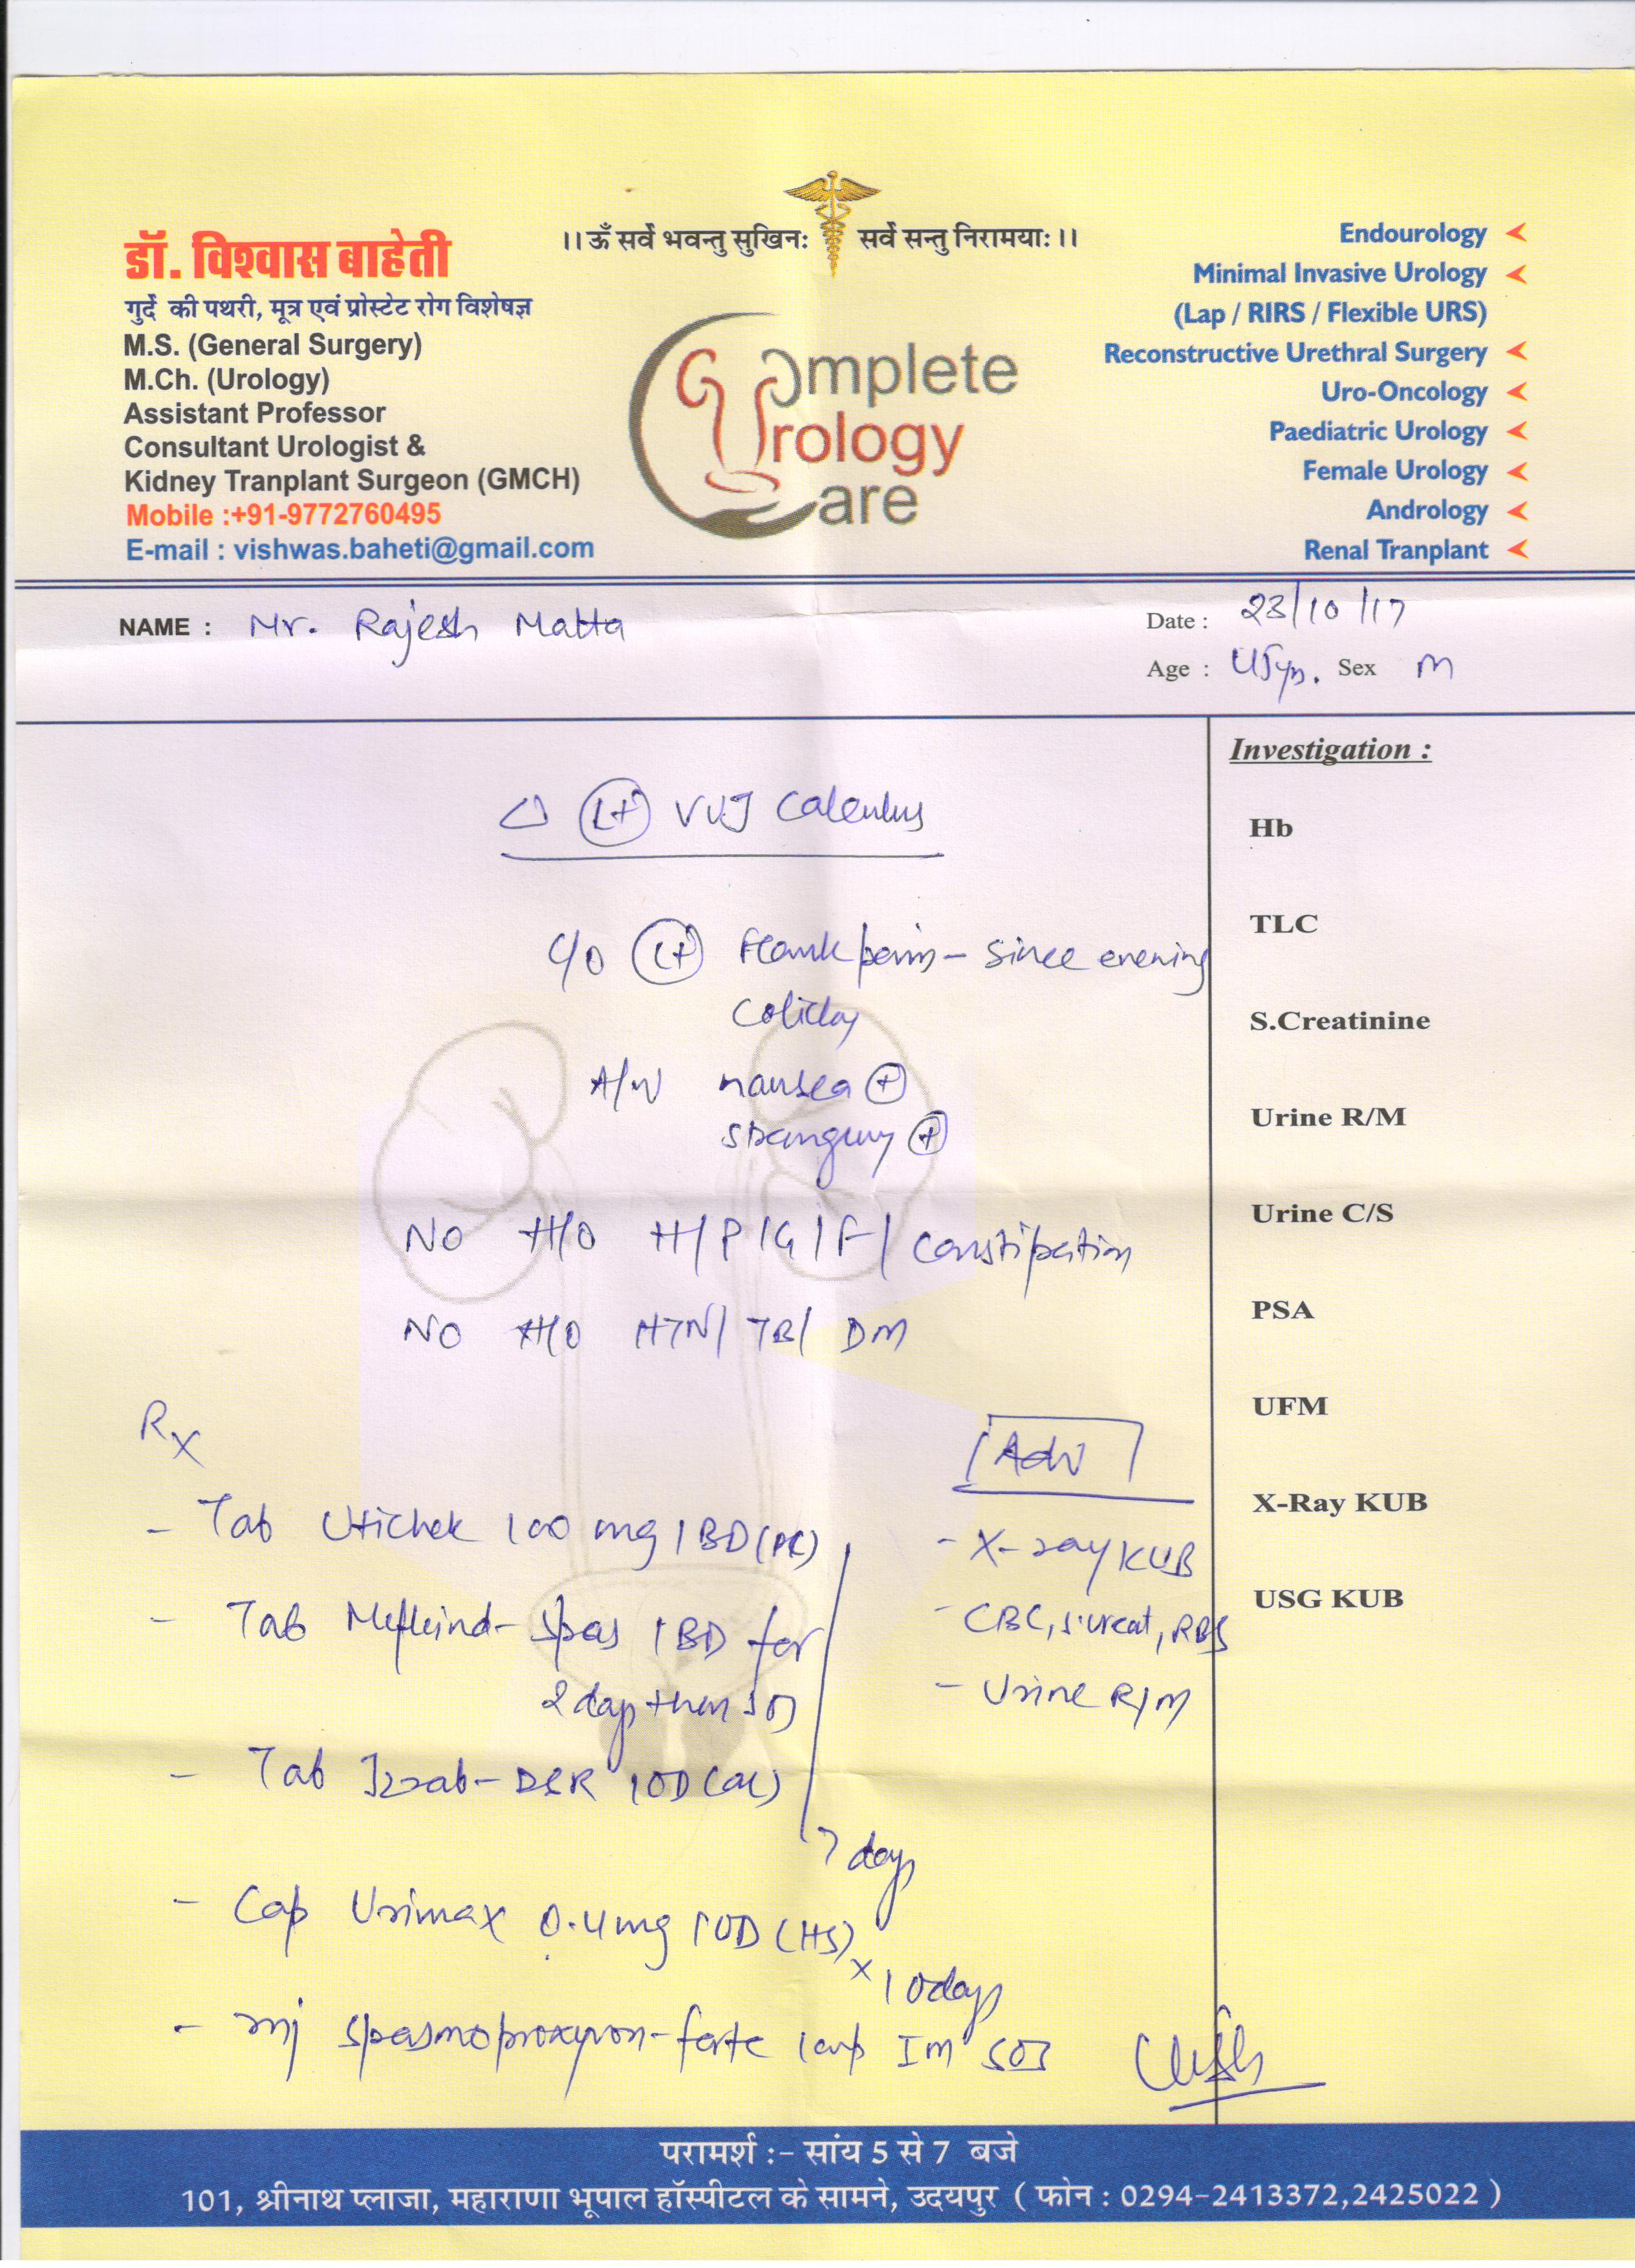 ।। ॐ सर्वे भवन्तु सुखिनः सर्वे सन्तु निरामयाः ।।
डॉ. विश्वास बाहेती
गुर्दे की पथरी, मूत्र एवं प्रोस्टेट रोग विशेषज्ञ
M.S. (General Surgery)
M.Ch. (Urology)
Assistant Professor
Consultant Urologist &
Kidney Tranplant Surgeon (GMCH)
Mobile :+91-9772760495
E-mail : vishwas.baheti@gmail.com
Complete
Urology
Care
Endourology
Minimal Invasive Urology
(Lap / RIRS / Flexible URS)
Reconstructive Urethral Surgery
Uro-Oncology
Paediatric Urology
Female Urology
Andrology
Renal Tranplant
NAME : Mr. Rajesh Matta
Date : 23/10/17
Age : Sex M
Δ (Lt) VUJ Calculus
C/O (Lt) Flank pain - since evening
colicky
A/W nausea ⊕
strangury ⊕
NO H/O H/P/G/F/ constipation
NO H/O HTN/ TB/ DM
Rx
- Tab Utichek 100 mg 1 BD (PC)
- Tab Mefkind-Spas 1 BD for
2 days then
- Tab Izrab-DSR 1 OD (AC)
7 days
- Cap Urimax 0.4mg 1 OD (HS)
x 10 days
- Inj Spasmoproxyvon-forte 1 amp IM SOS
Adv
- X-ray KUB
- CBC, S.creat, RBS
- Urine R/M
Investigation :
Hb
TLC
S.Creatinine
Urine R/M
Urine C/S
PSA
UFM
X-Ray KUB
USG KUB
परामर्श :- सांय 5 से 7 बजे
101, श्रीनाथ प्लाजा, महाराणा भूपाल हॉस्पीटल के सामने, उदयपुर ( फोन : 0294-2413372,2425022 )